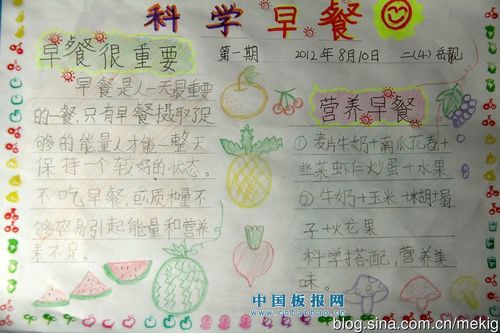 科学早餐
早餐很重要
第一期 2012年8月10日 二(4)
早餐是人一天最重要
的一餐,只有早餐摄取足
够的能量人才能一整天
保持一个较好的状态。
不吃早餐或质和量不
够容易引起能量和营养
素不足。
营养早餐
①麦片牛奶+南瓜花卷+
韭菜虾仁炒蛋+水果
②牛奶+玉米+
子+火龙果
科学搭配,营养美
味。
中国板报网
www.cnbanbao.com
blog.sina.com.cn/mekig